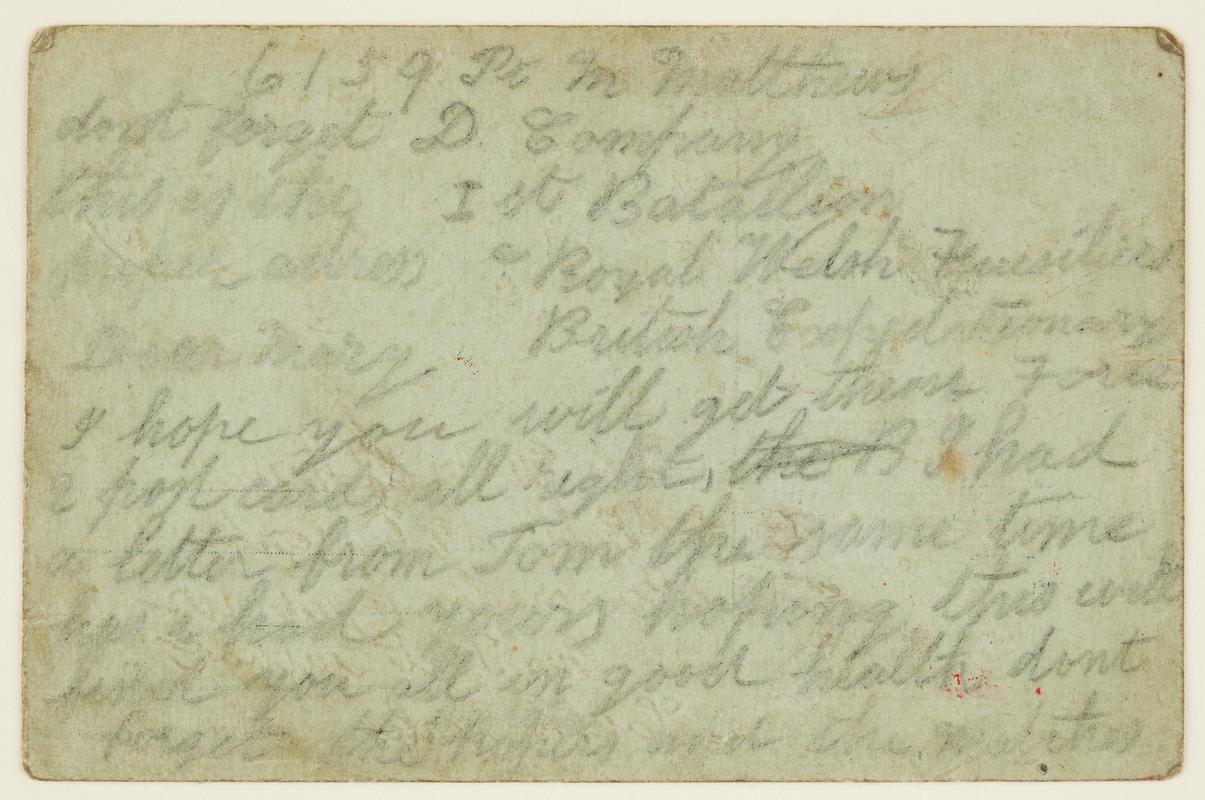 6159 Pt M Matthews
dont forget D. Company
this is the 1st Batallion
adress Royal Welsh Fuesiliers
Dear Mary British Expydationary
I hope you will get these Force
2 post cards all right, the B I had
a letter from Tom the same time
has i had yours hoping this will
find you all in good health dont
forget the papers and the matches